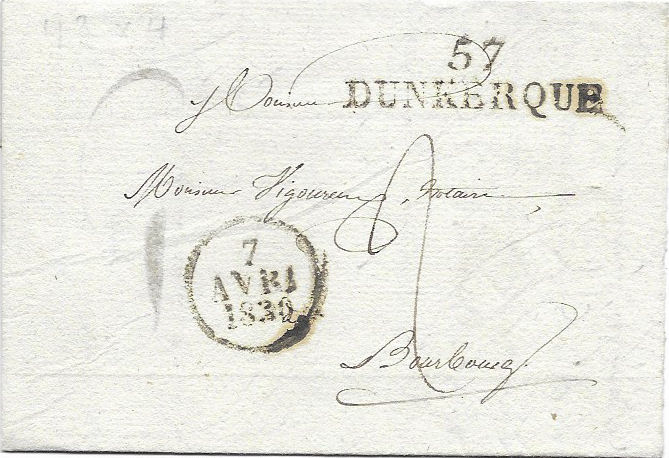 57
DUNKERQUE
Monsieur
Monsieur Vigoureux, Notaire
2
7
AVRI
1830
Bourbourg